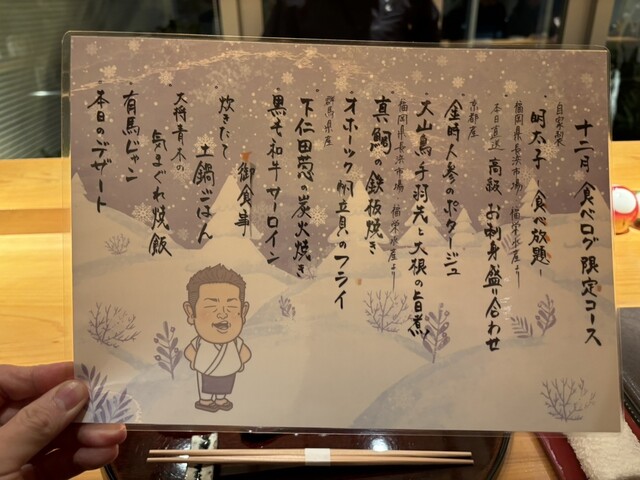 十二月 食べログ限定コース
自家製
明太子 -食べ放題-
福岡県長浜市場 福栄水産より
本日直送 高級 お刺身盛り合わせ
京都産
金時人参のポタージュ
大山鳥手羽元と大根の旨煮
福岡県長浜市場 福栄水産より
真鯛の鉄板焼き
オホーツク帆立貝のフライ
群馬県産
下仁田葱の炭火焼き
黒毛和牛サーロイン
御食事
炊きたて
土鍋ごはん
大将青木の
気まぐれ焼飯
有馬ジャン
本日のデザート